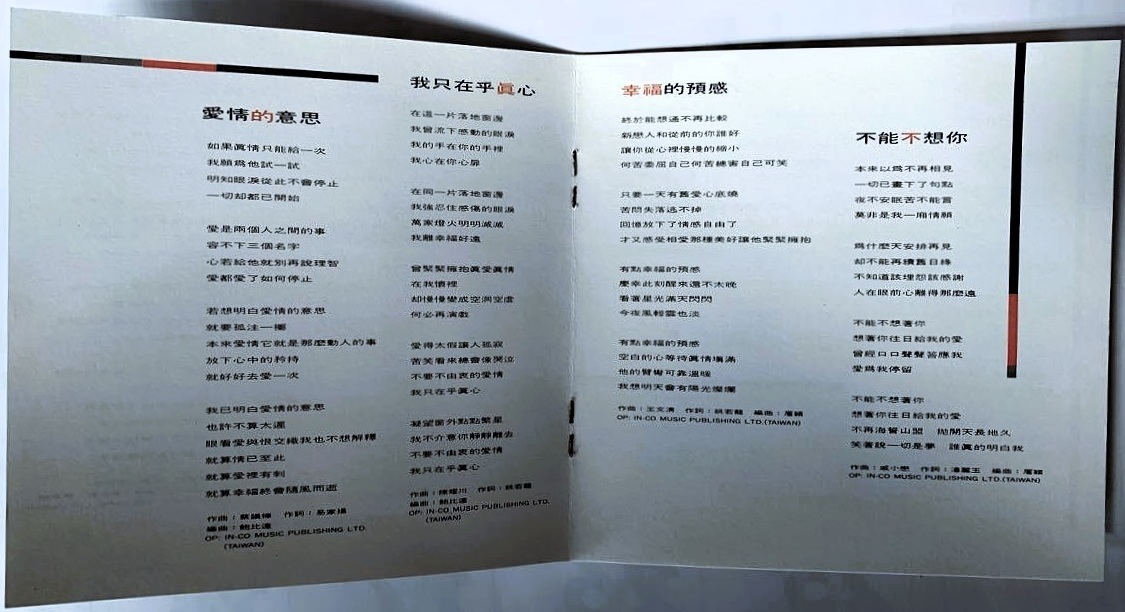 愛情的意思
如果眞情只能給一次
我願爲他試一試
明知眼淚從此不會停止
一切却都已開始
愛是兩個人之間的事
容不下三個名字
心若給他就別再說理智
愛都愛了如何停止
若想明白愛情的意思
就要孤注一擲
本來愛情它就是那麼動人的事
放下心中的矜持
就好好去愛一次
我已明白愛情的意思
也許不算太遲
眼看愛與恨交織我也不想解釋
就算情已至此
就算愛裡有刺
就算幸福終會隨風而逝
作曲：蔡議樟　作詞：易家揚
編曲：鮑比達
OP: IN-CO MUSIC PUBLISHING LTD.
(TAIWAN)
我只在乎眞心
在這一片落地窗邊
我曾流下感動的眼淚
我的手在你的手裡
我心在你心扉
在同一片落地窗邊
我強忍住感傷的眼淚
萬家燈火明明滅滅
我離幸福好遠
曾緊緊擁抱眞愛眞情
在我懷裡
却慢慢變成空洞空虛
何必再演戲
愛得太假讓人孤寂
苦笑看來總會像哭泣
不要不由衷的愛情
我只在乎眞心
凝望窗外點點繁星
我不介意你靜靜離去
不要不由衷的愛情
我只在乎眞心
作曲：陳耀川　作詞：姚若龍
編曲：鮑比達
OP: IN-CO MUSIC PUBLISHING LTD.
(TAIWAN)
幸福的預感
終於能想通不再比較
新戀人和從前的你誰好
讓你從心裡慢慢的縮小
何苦委屈自己何苦總害自己可笑
只要一天有舊愛心底燒
苦悶失落逃不掉
回憶放下了情感自由了
才又感受相愛那種美好讓他緊緊擁抱
有點幸福的預感
慶幸此刻醒來還不太晚
看著星光滿天閃閃
今夜風輕雲也淡
有點幸福的預感
空白的心等待眞情塡滿
他的臂彎可靠溫暖
我想明天會有陽光燦爛
作曲：王文清　作詞：姚若龍　編曲：屠穎
OP: IN-CO MUSIC PUBLISHING LTD.(TAIWAN)
不能不想你
本來以爲不再相見
一切已畫下了句點
夜不安眠苦不能言
莫非是我一廂情願
爲什麼天安排再見
却不能再續舊日緣
不知道該埋怨該感謝
人在眼前心離得那麼遠
不能不想著你
想著你往日給我的愛
曾經口口聲聲答應我
愛爲我停留
不能不想著你
想著你往日給我的愛
不再海誓山盟　拋開天長地久
笑著說一切是夢　誰眞的明白我
作曲：戚小戀　作詞：潘麗玉　編曲：屠穎
OP: IN-CO MUSIC PUBLISHING LTD.(TAIWAN)